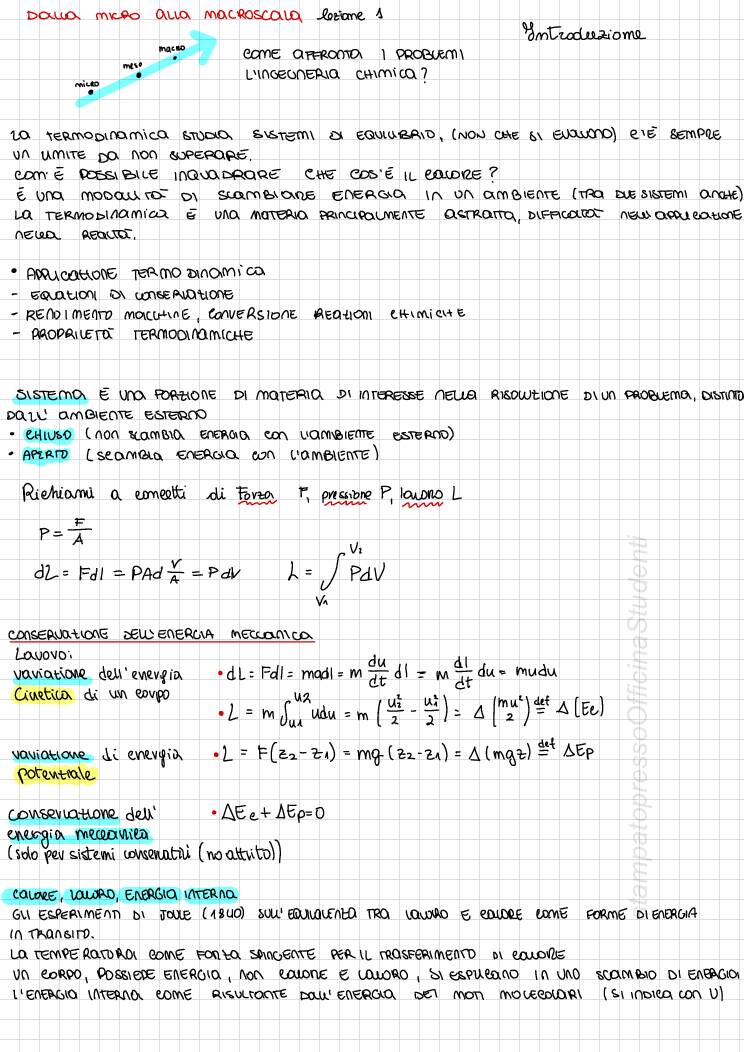 DALLA MICRO ALLA MACROSCALA lezione 1
Introduzione
micro
meso
macro
COME AFFRONTA I PROBLEMI
L'INGEGNERIA CHIMICA?
LA TERMODINAMICA STUDIA SISTEMI DI EQUILIBRIO, (NON CHE SI EVOLVONO) C'È SEMPRE
UN LIMITE DA NON SUPERARE.
COM'È POSSIBILE INQUADRARE CHE COS'È IL CALORE?
È UNA MODALITÀ DI SCAMBIARE ENERGIA IN UN AMBIENTE (TRA DUE SISTEMI ANCHE)
LA TERMODINAMICA È UNA MATERIA PRINCIPALMENTE ASTRATTA, DIFFICOLTÀ NELL'APPLICAZIONE
NELLA REALTÀ.
• APPLICAZIONE TERMODINAMICA
- EQUAZIONI DI CONSERVAZIONE
- RENDIMENTO MACCHINE, CONVERSIONE REAZIONI CHIMICHE
- PROPRIETÀ TERMODINAMICHE
SISTEMA È UNA PORZIONE DI MATERIA DI INTERESSE NELLA RISOLUZIONE DI UN PROBLEMA, DISTINTO
DALL' AMBIENTE ESTERNO
• CHIUSO (NON SCAMBIA ENERGIA CON L'AMBIENTE ESTERNO)
• APERTO (SCAMBIA ENERGIA CON L'AMBIENTE)
Richiami a concetti di Forza F, pressione P, lavoro L
P = F/A
dL = Fdl = PAd V/A = PdV L = ∫ V1 V2 PdV
CONSERVAZIONE DELL'ENERGIA MECCANICA
Lavoro:
variazione dell'energia • dL = Fdl = madl = m du/dt dl = m dl/dt du = mudu
Cinetica di un corpo • L = m ∫ u1 u2 udu = m (u2²/2 - u1²/2) = Δ (mu²/2) def= Δ(Ec)
variazione di energia • L = F(z2-z1) = mg(z2-z1) = Δ(mgz) def= ΔEp
potenziale
conservazione dell' • ΔEc + ΔEp = 0
energia meccanica
(solo per sistemi conservativi (no attrito))
CALORE, LAVORO, ENERGIA INTERNA
GLI ESPERIMENTI DI JOULE (1840) SULL'EQUIVALENZA TRA LAVORO E CALORE COME FORME DI ENERGIA
IN TRANSITO.
LA TEMPERATURA COME FORZA SPINGENTE PER IL TRASFERIMENTO DI CALORE
UN CORPO, POSSIEDE ENERGIA, NON CALORE E LAVORO, SI ESPLICANO IN UNO SCAMBIO DI ENERGIA
L'ENERGIA INTERNA COME RISULTANTE DALL'ENERGIA DEI MOTI MOLECOLARI (SI INDICA CON U)
stampatopressoOfficinaStudenti